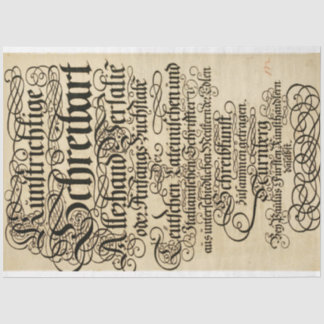 Kunstrichtige
Schreibart
Allerhand Versalie
oder Anfangs Buchstabe
Der
Teütschen, Lateinischen und
Italianischen Schrifften
aus unterschiedlichen Meistern der Edlen
Schreibkunst
zusammengetragen.
Nürnberg
Bey Paulus Fürsten, Kunsthändlern
daselbst.